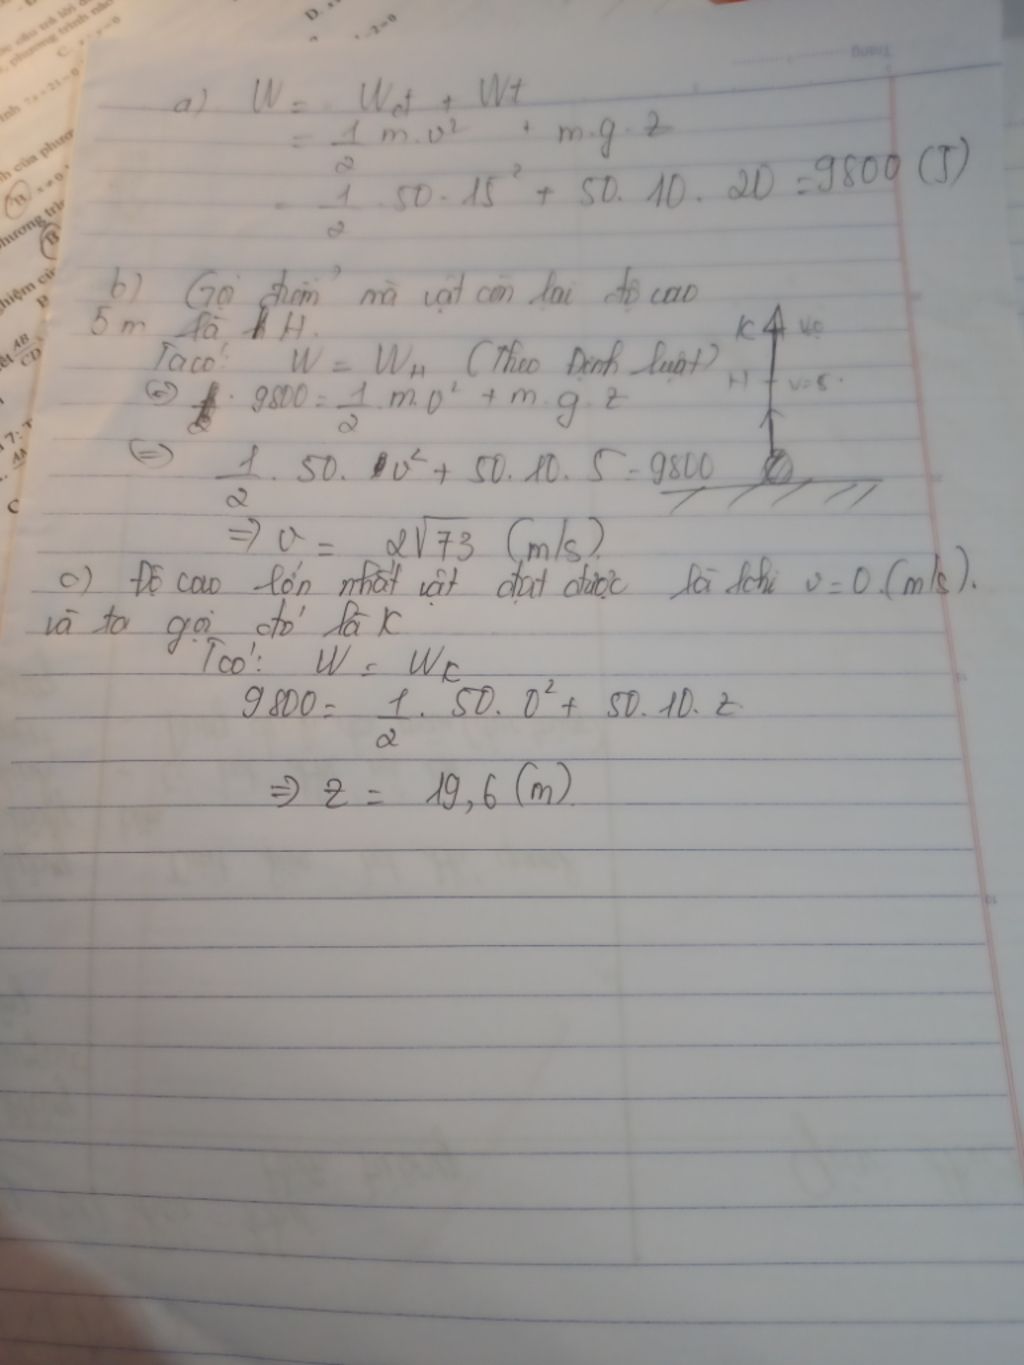 D.
C.
a) W = Wđ + Wt
= 1/2 m.v² + m.g.z
= 1/2 . 50 . 15² + 50. 10. 20 = 9800 (J)
b) Gọi điểm mà vật còn lại độ cao
5m là H.
Ta có: W = W_H (Theo Định luật)
(=) 9800 = 1/2 .m.v² + m.g.z
(=) 1/2 . 50. v² + 50. 10. 5 = 9800
=> v = 2√73 (m/s).
K
H v=5.
c) Độ cao lớn nhất vật đạt được là khi v = 0 (m/s).
và ta gọi đó là K
Tcó: W = W_K
9800 = 1/2 . 50. 0² + 50. 10. z
=> z = 19,6 (m).